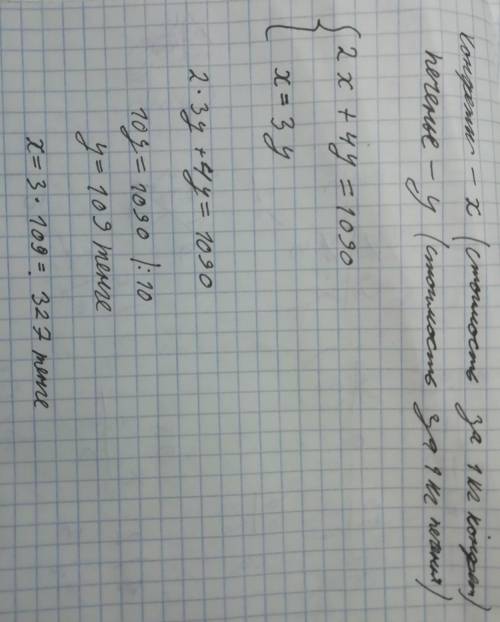 конфеты – x (стоимость за 1 кг конфет)
печенье – y (стоимость за 1 кг печенья)
{ 2x + 4y = 1090
x = 3y
2·3y + 4y = 1090
10y = 1090 |:10
y = 109 тенге
x = 3·109 = 327 тенге